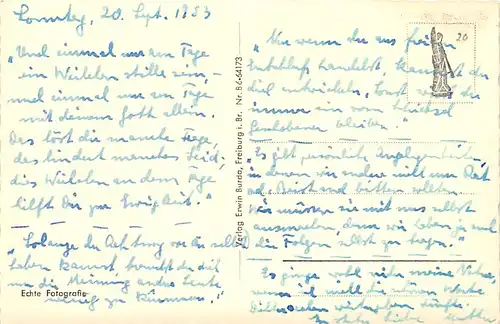 Sonntag, 20. Sept. 1953
"Und einmal nur am Tage
ein Weilchen stille sein, –
und einmal nur am Tage
mit deinem Gott allein.
Das löst dir manche Frage,
das lindert manches Leid,
dies Weilchen an dem Tage
hilft Dir zur Ewigkeit."
"Solange du Achtung vor dir selbst
haben kannst, brauchst du dich
um die Meinung andrer Leute
wenig zu kümmern."
Echte Fotografie
Verlag Erwin Burda, Freiburg i. Br. Nr. B 6-64173
20
"Nur wenn du aus freiem
Entschluß handelst, kannst du
dich entwickeln, sonst wirst du
immer ein vom Schicksal
Geschobener bleiben."
"Es gibt persönliche Angelegenheiten,
in denen wir andere nicht um Rat
und Beistand bitten sollten.
Wir müssen sie mit uns selbst
ausmachen, denn wir haben ja auch
die Folgen selbst zu tragen."
Es ginge wohl
wenn ich mich